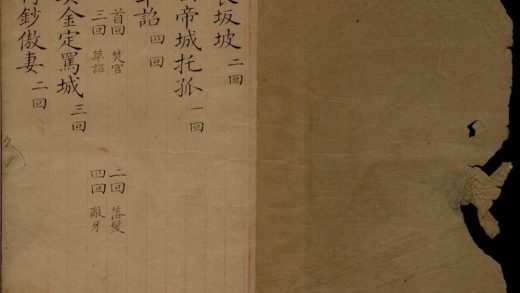 長坂坡 二回
帝城托孤 一回
詔 四回
首回 焚宮 二回 落髮
三回 草詔 四回 敲牙
金定罵城 三回
鈔傲妻 二回